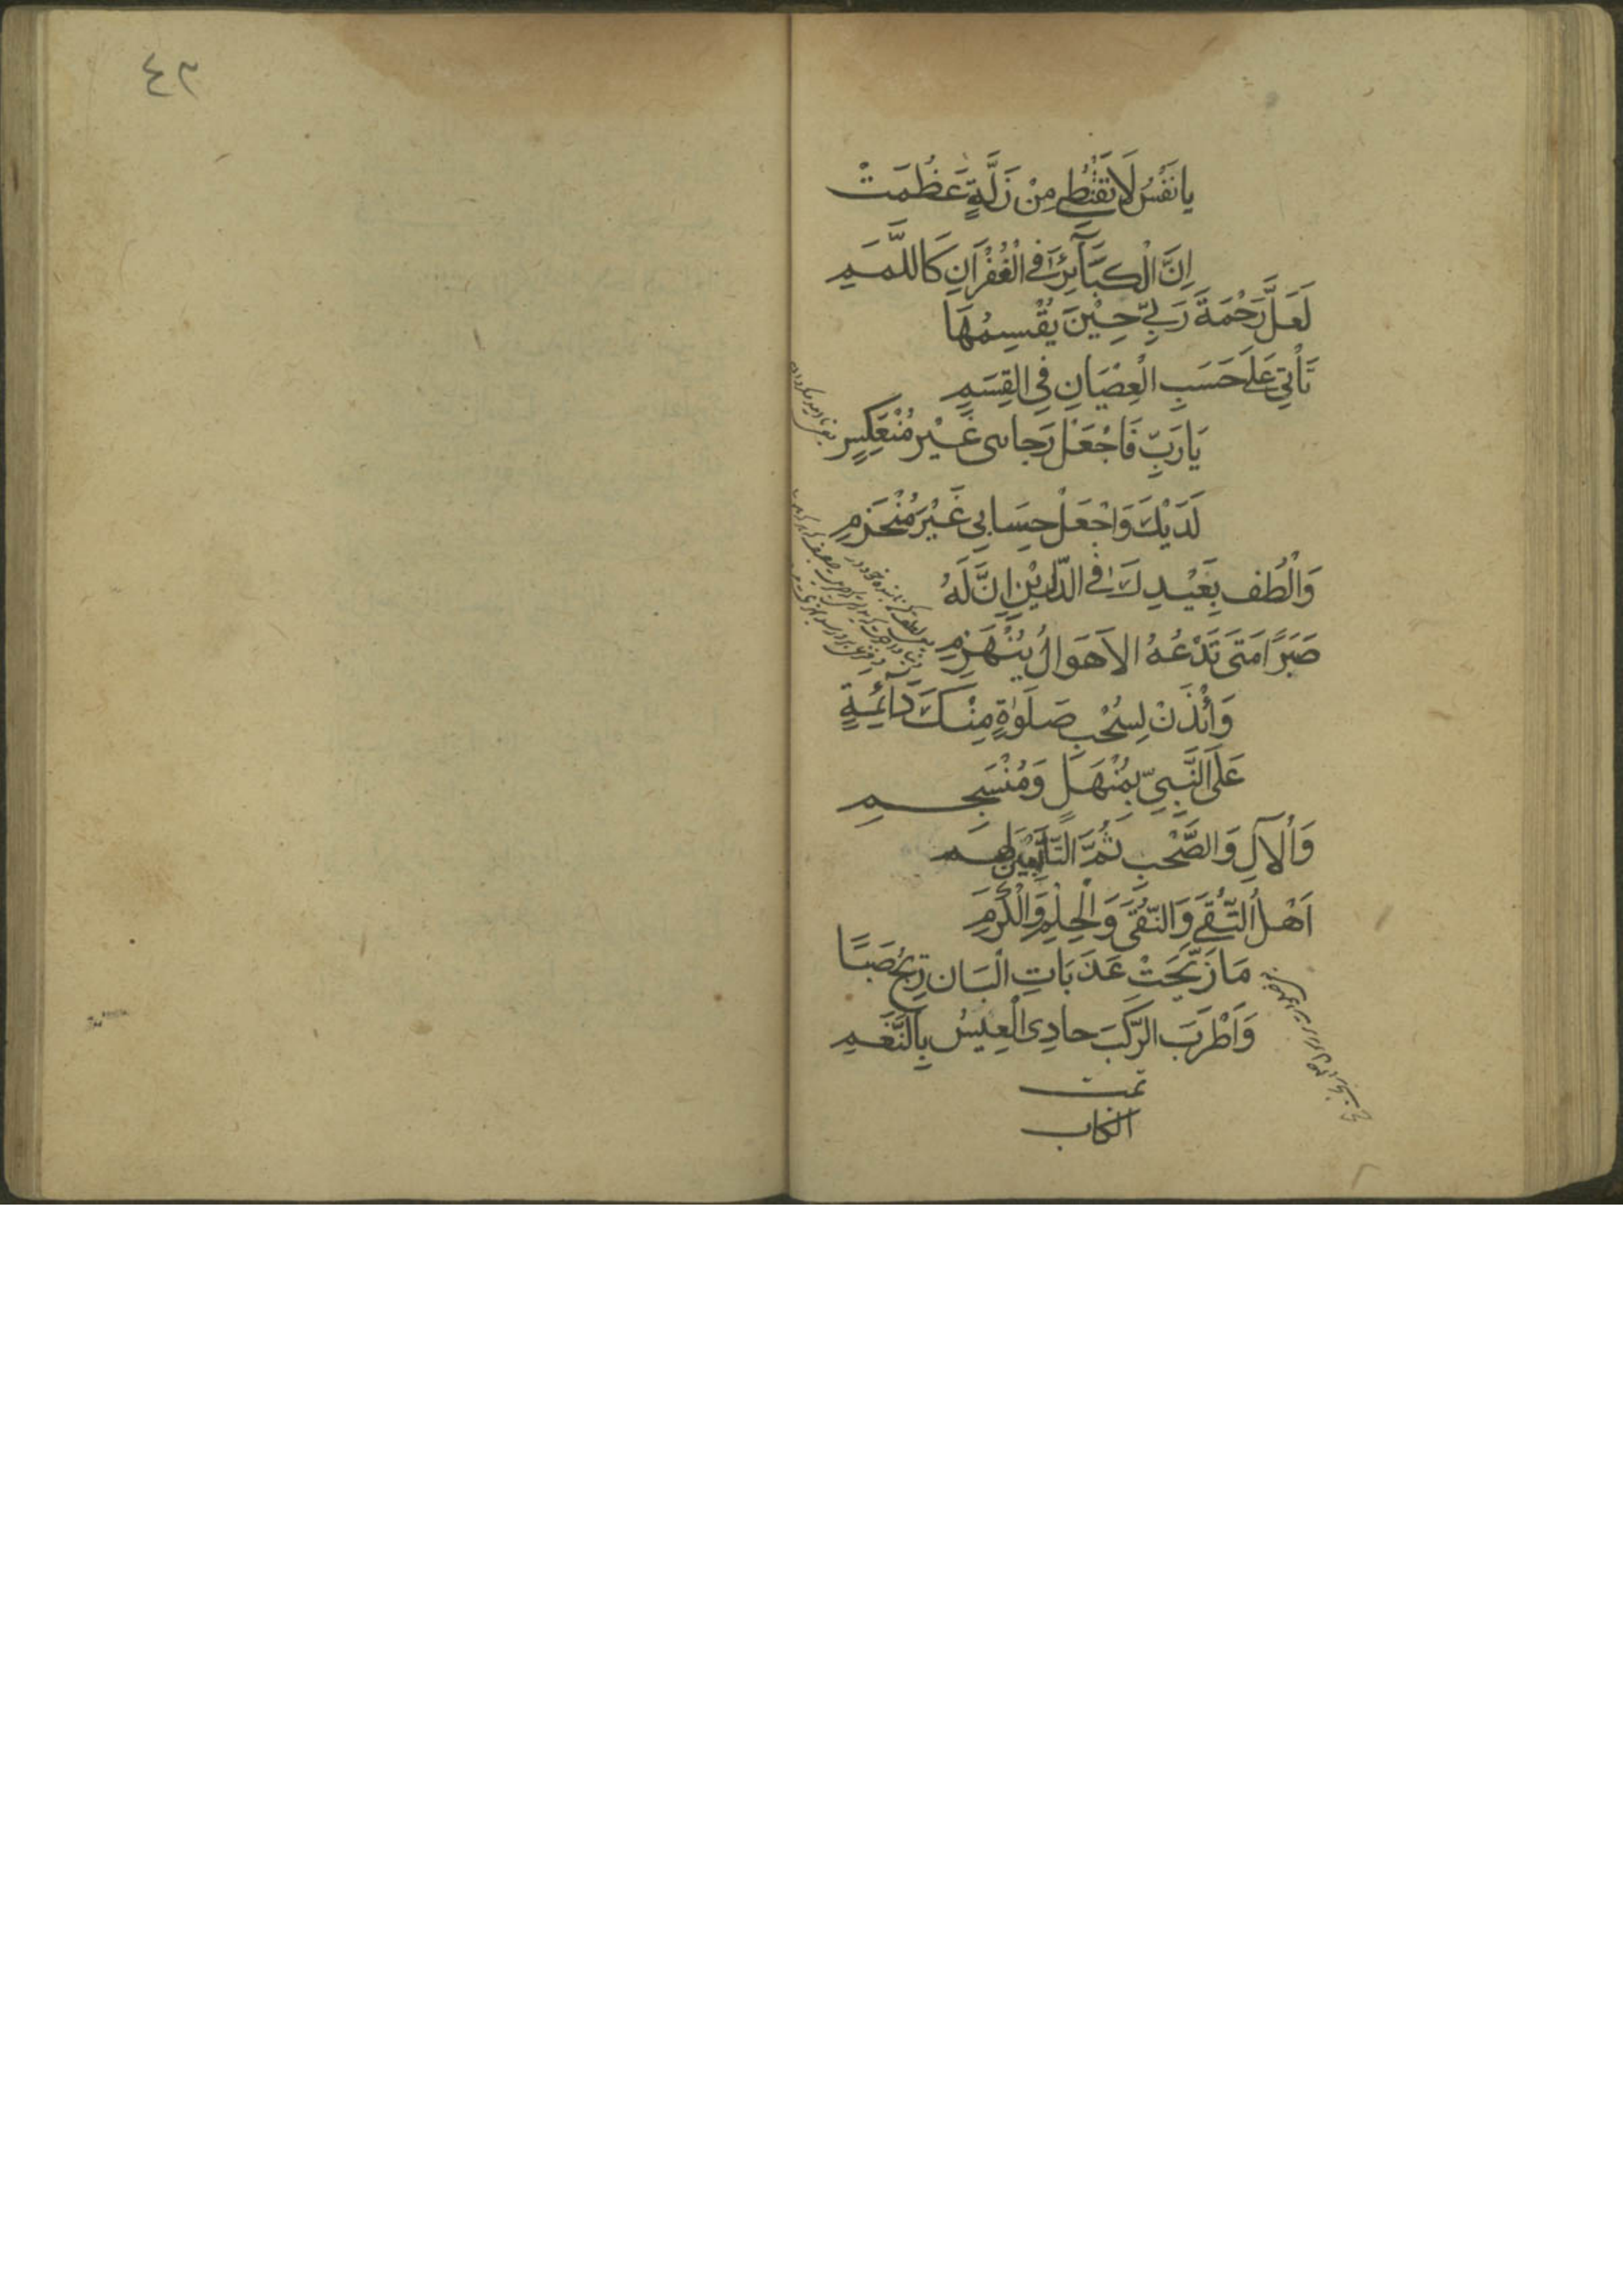 يا نَفْسُ لَا تَقْنَطِي مِنْ زَلَّةٍ عَظُمَتْ
اِنَّ الْكَبَآئِرَ فِي الْغُفْرَانِ كَاللَّمَمِ
لَعَلَّ رَحْمَةَ رَبِّي حِيْنَ يَقْسِمُهَا
تَأْتِي عَلَى حَسَبِ الْعِصْيَانِ فِي القِسَمِ
يَارَبِّ فَاجْعَلْ رَجاىى غَيْر مُنْعَكِسٍ
لَدَيْكَ وَاجْعَلْ حِسَابِي غَيْرَ مُنْخَرِمِ
وَالْطُف بِعَيْدِكَ فِي الدّارَيْنِ اِنَّ لَهُ
صَبَرًا مَتَى تَدْعُهُ الاَهَوَالُ يَنْهَزِمِ
وَأْذَنْ لِسُحْبِ صَلَوٰةٍ مِنْكَ دَآئِمَةٍ
عَلَى النَّبِيِّ بِمُنْهَلٍّ وَمُنْسَجِمِ
وَالْآلِ وَالصَّحْبِ ثُمَّ التَّابِعِيْنَ لَهم
اَهْلُ التُّقَى وَالنّقَى وَالْحِلْمِ وَالْكَرَمِ
مَا رَنَّحَتْ عَذَبَاتِ الْبَان رِيْحُ صَبًا
وَاَطْرَبَ الرَّكْبَ حادِى الْعِيْسُ بِالنَّغَمِ
تمت
الكتاب
٤٢